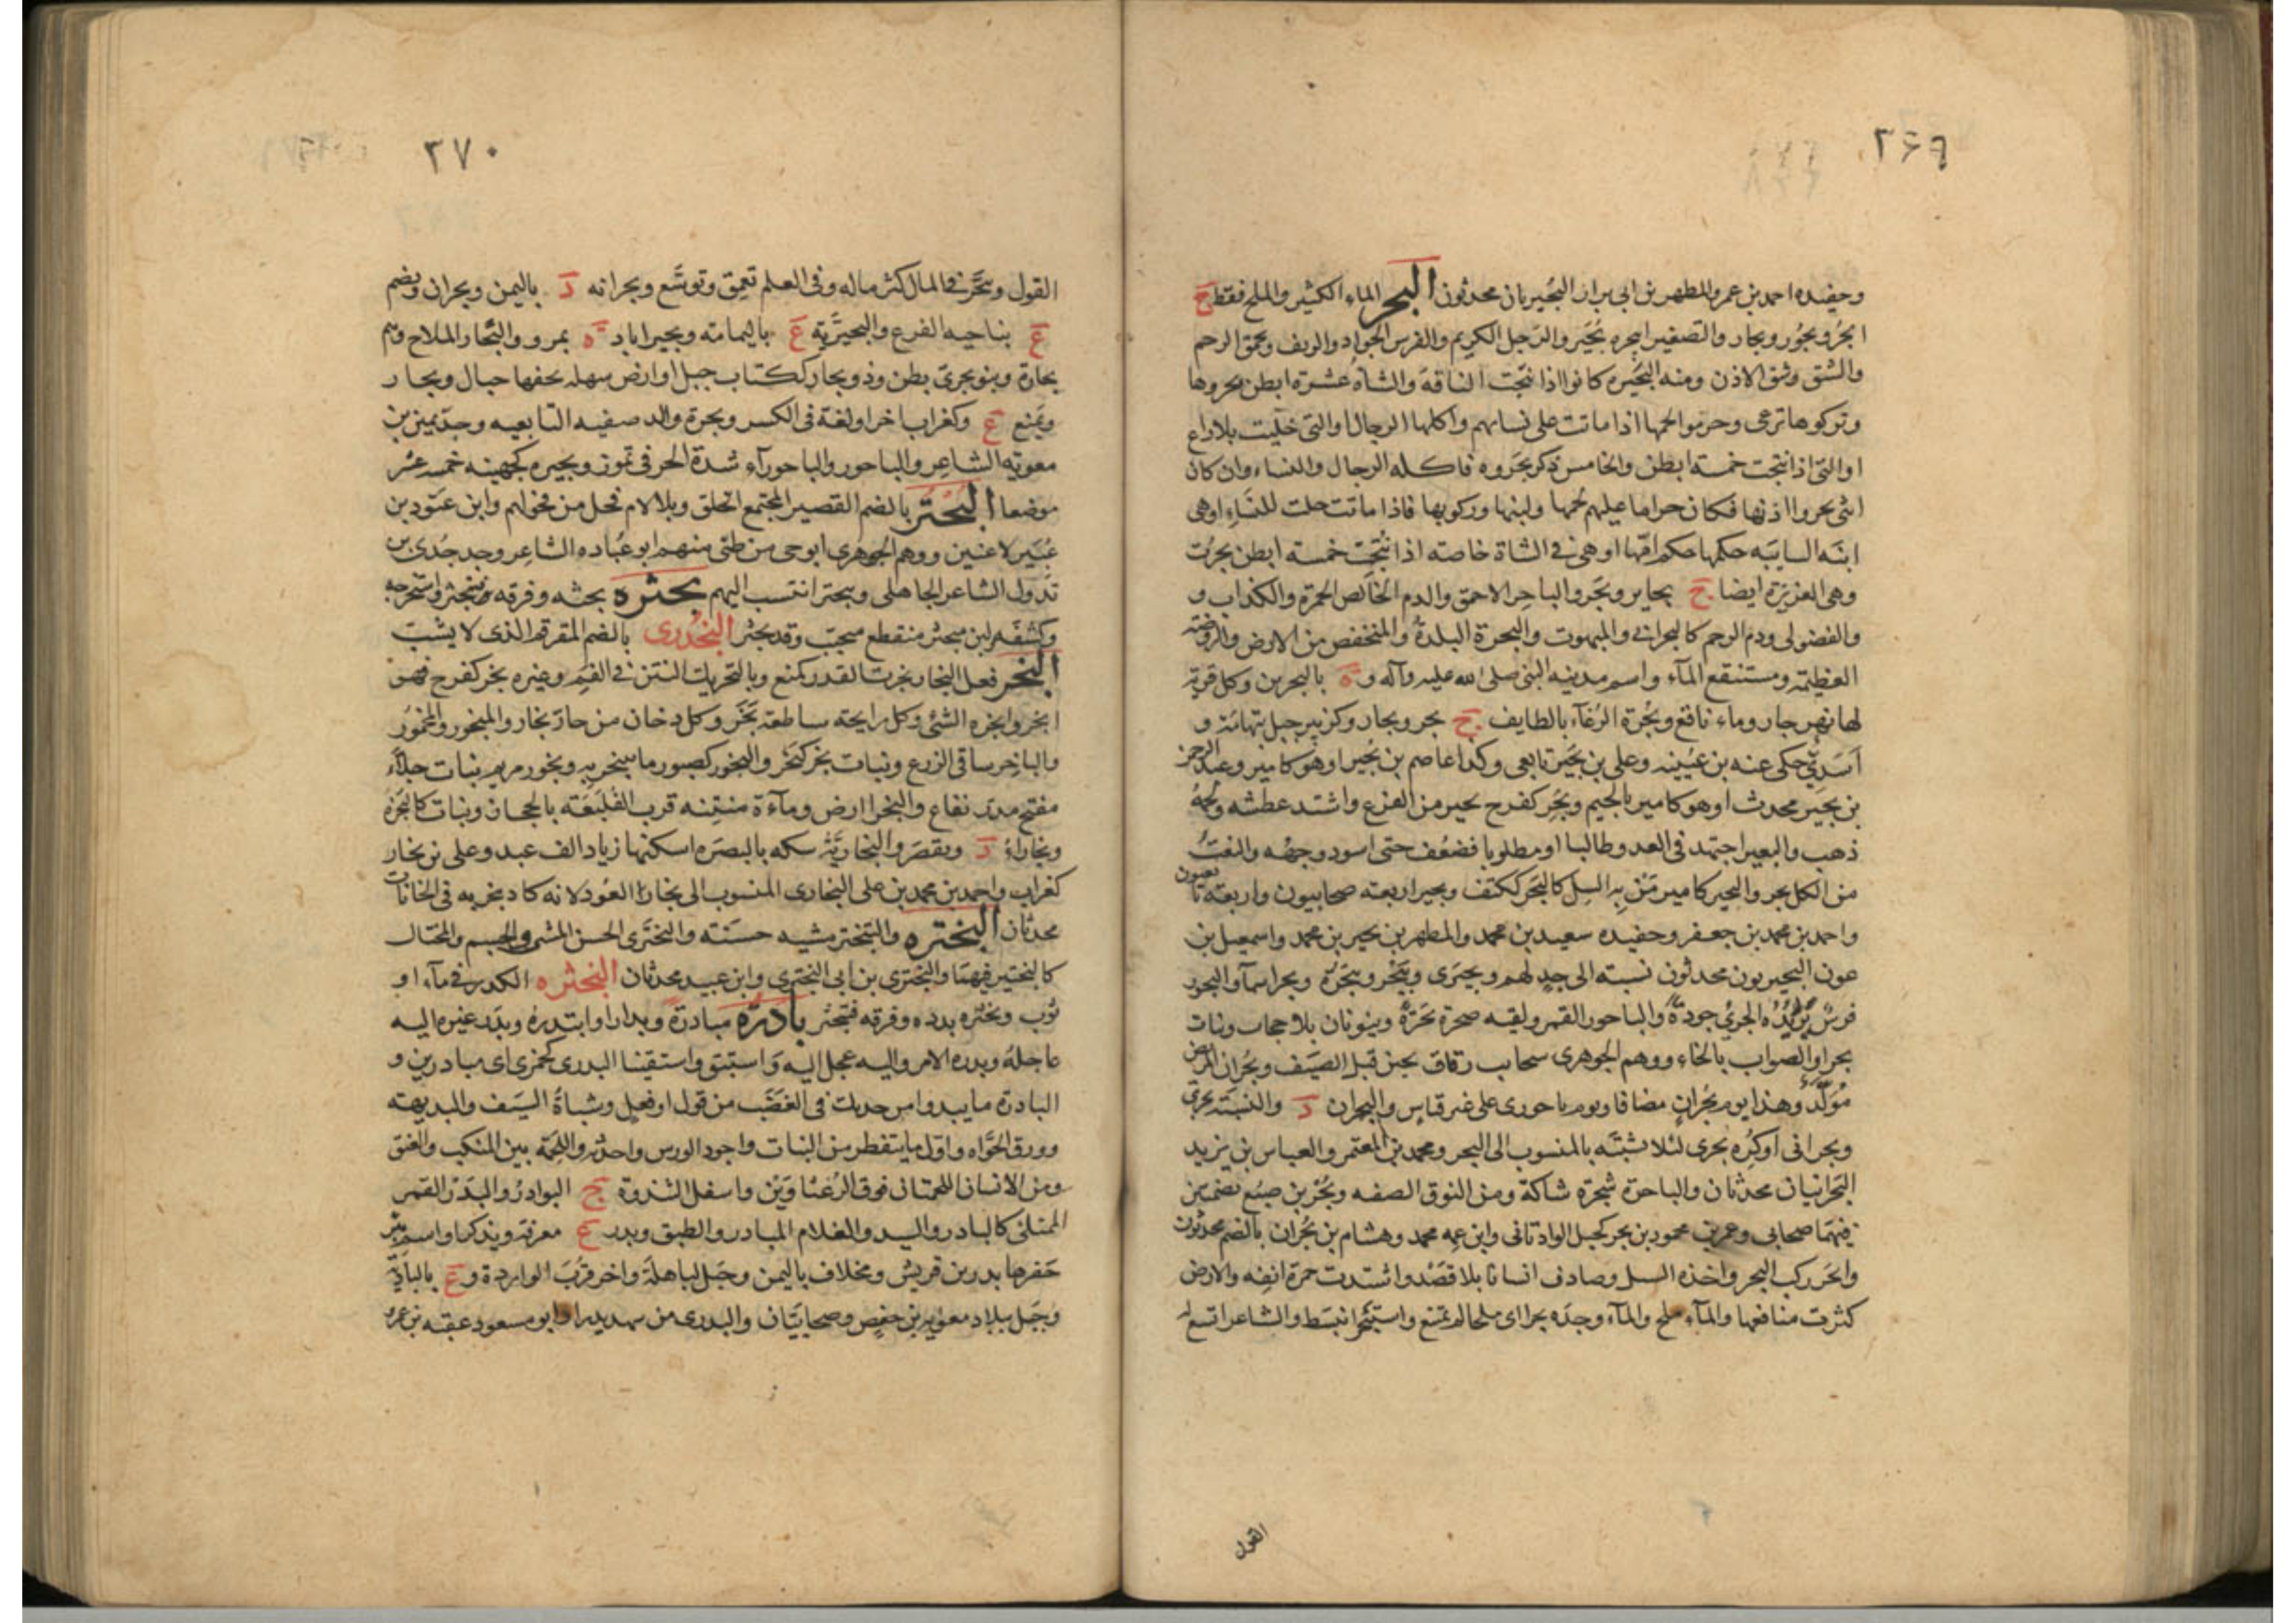 ٣۶٩
وحفيده احمد بن عمر والمطهر بن ابى بزار البُحيريان محدثون البحر الماء الكثير والملح فقط ج
ابحُر وبحُور وبحار والتصغير ابيحر وبُحَير والرَجل الكريم والفرس الجواد والريف وعمق الرحم
والشق وشق الاذن ومنه البَحيره كانوا اذا نتجت الناقةَ والشاةُ عشرة ابطن بحروها
وتركوها ترعى وحرموا لحمها اذا ماتت على نسائهم واكلها الرجال او التى خليت بلا راع
او التى اذا نتجت خمسة ابطن والخامس ذكر نحَروه فاكله الرجال والنساء وان كان
انثى بحروا اذنها فكان حراما عليهم لحمها ولبنها وركوبها فاذا ماتت حلت للنساءِ او هى
ابنَه السايبَه حكمها حكم امّها او هى فى الشاة خاصته اذا نُتِجَت خمسة ابطن بحرت
وهى الغزيزة ايضا ج بحاير وبحَر والباحِر الاحمق والدم الخالص الحمرة والكذاب و
والفضولى ودم الرحم كالبحرانى والمبهوت والبحرة البلدةُ والمنخفض من الارض والروضته
العظيمة ومستنقع المآء واسم مدينه النبى صلى الله عليه وآله و ة بالبحرين وكل قرية
لها نهر جار وماء ناقع وبُحرة الرُغآء بالطايف ج بحر وبحار وكزبير جبل بتهامَة و
اَسَدِىّ حكى عنه بن عيُينه وعلى بن بحَير تابعى وكذا عاصم بن بُحَير او هو كامير وعبد الرحمن
بن بجير محدث او هو كامير بالجيم وبحِر كفرح تحير من الفزع واشتد عطشه ولحمُهُ
ذهب والبعير اجتهد فى العدو طالبا او مطلوبا فضعُف حتى اسود وجهُه والنعتُ
من الكل بحر والبحير كامير مَنْ بِهِ السِل كالبَحِر ككتف وبحير اربعته صحابيون واربعته تابعيون
واحمد بن محمد بن جعفر وحفيده سعيد بن محمد والمطهر بن بحير بن محمد واسمعيل بن
عون البحيريون محدثون نسبته الى جدٍ لهم وبحيرَى وبَيْحَر وبيحَرَة وبحر اسمآ والبحور
فرسٌ يزيدُهُ الجرىُ جودةً والباحور القمر ولقيه صحرة بَحَرةً وينونان بلا حجاب وبنات
بحر او الصواب بالخاء ووهم الجوهرى سحايب رقاق يجئن قبل الصيَف وبُحران المرض
مُوَلَّدٌ وهذا يوم بُحرانٍ مضافا ويوم باحورى على غير قياس والبحران د والنسبَته بحرىّ
وبحرانى او كُره بحرى لئلا يشتبَه بالمنسوب الى البحر ومحمد بن المعتمر والعباس بن يزيد
البَحرانيان محدثان والباحرة شجرَة شاكة ومن النوق الصفيه وبُحُر بن ضبُع بضمتين
فيهمَا صحابى وعمر بن محمود بن بحر كجبل الواذنانى وابن عمه محمد وهشام بن بُحران بالضم محدثون
وابحَر ركب البحر واخذه السل وصادف انسانا بلا قصَدٍ واشتدت حمرة انفِه والارض
كثرت منافعها والمآء ملح والمآء وجدَه بحرا اى ملحا لم يمتنع واستبحَر انبسَط والشاعر اتسع له
القول
٣٧٠
القول وتبحَّر فى المال كثر ماله وفى العلم تعمق وتوسَّع وبحرانه د باليمن وبحران ويضم
ع بناحيه الفرع والبحيريَّته ع باليمامته وبحيراباد ة بمرو والبحّار الملاح وهم
بحارة وبنو بحرىّ بطن وذو بحار ككتاب جبل او ارض سهله تحفها جبال وبحار
ويَمنع ع وكغراب اخر او لغة فى الكسر وبحرة والد صفيه التابعيه وجدّ يمين بن
معويته الشاعِر والباحور والباحورآء شدة الحر فى تموز وبحيره كجهينه خمسه عشر
موضعا البُحتُر بالضم القصير المجتمع الخلق وبلا لام فحل من فحولهم وابن عتود بن
عُنَيِر لا عنين ووهم الجوهرى ابو حى من طئ منهم ابو عُباده الشاعِر وجد جُدى بن
تدول الشاعر الجاهلى وبحتر انتسب اليهم بحثره بحثه وفرقه فتبحثر واستخرجه
وكشفَه لبن مبحثر منقطع متحبّب وقد بحثر البُحْدُرى بالضم المقرقم الذى لا يشبّ
البَخر فعل البخار بخرت القدر كمنع وبالتحريك النتن فى الفمِ وغيره بخر كفرح فهو
ابخر وابخره الشئى وكل رايحته ساطعة بَخَر وكل دخان من حارّ بخار والمبخور والمخمُور
والباخِر ساقى الزرع وبنات بخر كبَحر والبخور كصبور ما يتبخر بِه وبخور مريم نبات جلآء
مفتح مدر نفاع والبخرا ارض ومآءة منتِنه قرب القُلَيْعَته بالحجاز ونبات كالبَحَره
وبخاراءُ د ويقصَر والبخاريَّة سكه بالبصَره اسكنها زياد الف عبد وعلى بن بخار
كغراب واحمد بن محمد بن على البخارى المنسوب الى بخار العُود لانه كان يبخر به فى الخانات
محدثان البختره والتبختر مشيه حسَنته والبَختَرى الحسن المشى والجسم والمختال
كالبختير فيهمَا والبختَرى بن ابى البختَرى وابن عبيد محدثان البخثره الكدر فى مآء او
ثوَب وبخثره بدده وفرقه فتبخثر بادرَه مبادرَة وبدارا وابتدره وبدَر غيره اليه
عاجلهُ وبدره الامر واليه عجل اليه وَاستبق واستبقنا البدرى كجمزى اى مبادرين و
البادرة ما يبدوا من حدتك فى الغضَب من قول او فعِلٍ وشباةُ السيَف والبديهته
وورق الحوَّاه واوّل ما يتفطر من النبات واجود الورس واحدثه واللحَمَة بين المنكب والعنق
ومن الانسان اللحمتان فوق الرُغثاوَيْن واسفل الثندوة ج البوادر والبَدر القمر
الممتلئ كالبادر والسيد والغلام المبادر والطبق وبدر ع معرفة ويذكر او اسم بئر
حَفرها بدر بن قريش ومخلاف باليمن وجَبل لباهلَة واخر قربَ الواردة وع بالباديَة
وجَبل ببلاد معوية بن حفصٍ وصحابيَّان والبدرى من شهد بدرا وابو مسعود عقبه بن عمرو